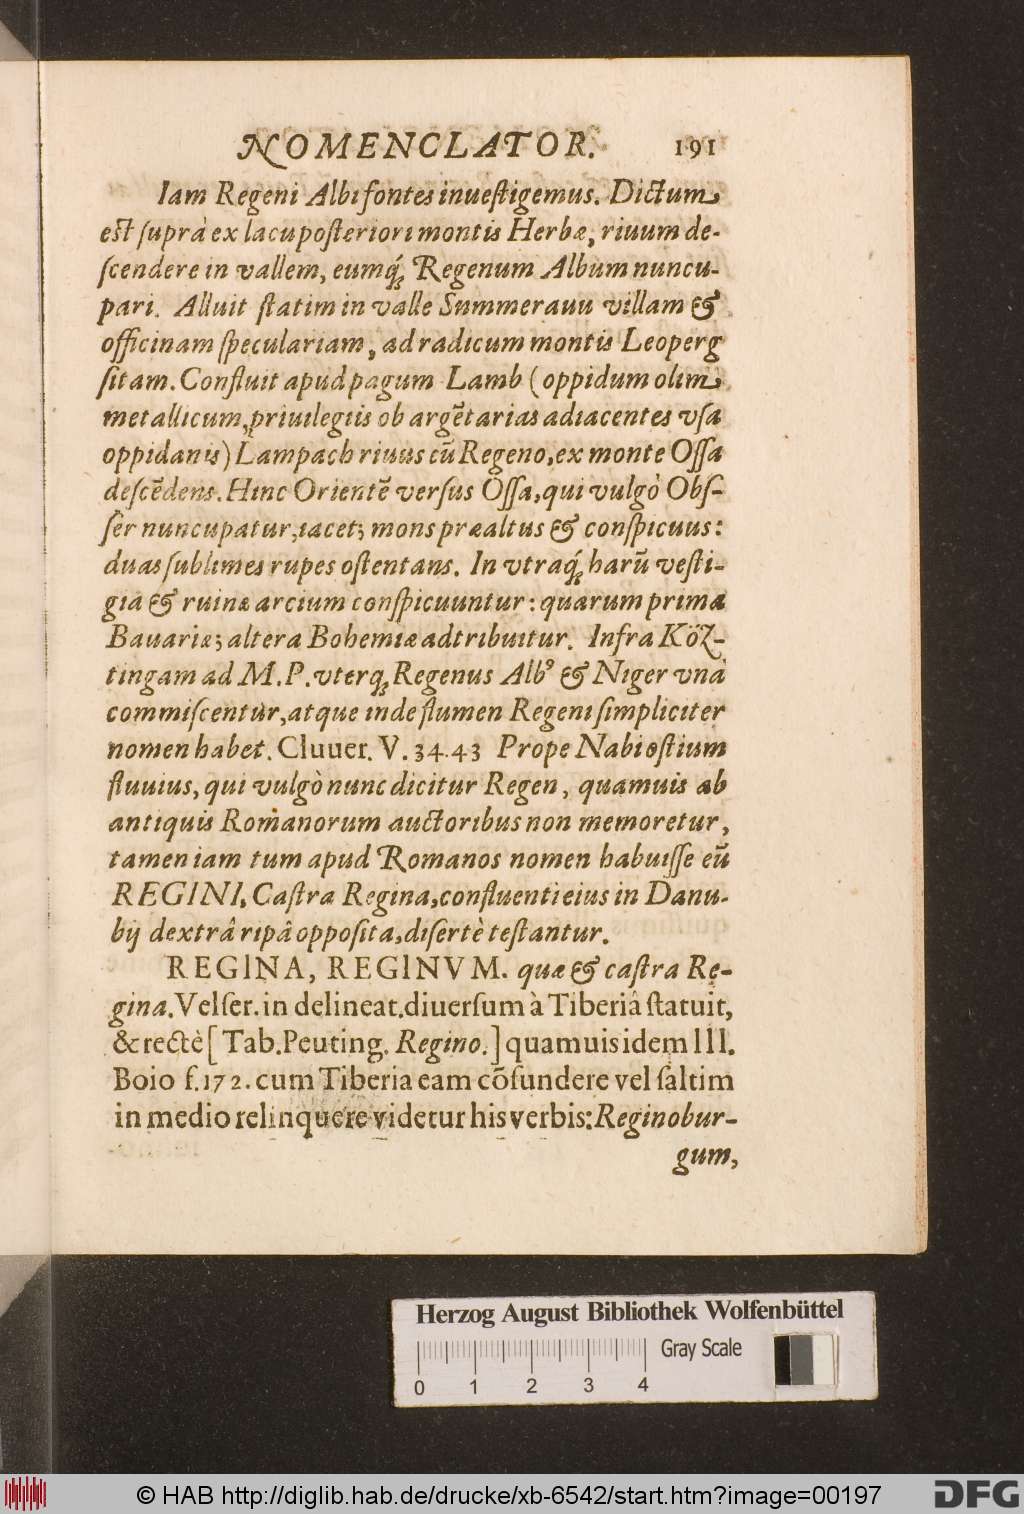 NOMENCLATOR. 191
Iam Regeni Albi fontes inuestigemus. Dictum
est suprà ex lacu posteriori montis Herbæ, riuum de-
scendere in vallem, eumq́; Regenum Album nuncu-
pari. Alluit statim in valle Summerauu villam &
officinam speculariam, ad radicum montis Leoperg
sitam. Confluit apud pagum Lamb (oppidum olim
metallicum, priuilegiis ob argẽtarias adiacentes vsa
oppidanis) Lampach riuus cũ Regeno, ex monte Ossa
descẽdens. Hinc Orientẽ versus Ossa, qui vulgò Obs-
ser nuncupatur, iacet; mons præaltus & conspicuus:
duas sublimes rupes ostentans. In vtraq́; harũ vesti-
gia & ruinæ arcium conspicuuntur: quarum prima
Bauariæ; altera Bohemiæ adtribuitur. Infra Köz-
tingam ad M.P. vterq; Regenus Alb⁹ & Niger vnà
commiscentur, atque inde flumen Regeni simpliciter
nomen habet. Cluuer. V. 34.43 Prope Nabi ostium
fluuius, qui vulgò nunc dicitur Regen, quamuis ab
antiquis Romanorum auctoribus non memoretur,
tamen iam tum apud Romanos nomen habuisse eũ
REGINI, Castra Regina, confluenti eius in Danu-
bij dextrâ ripâ opposita, disertè testantur.
REGINA, REGINVM. quæ & castra Re-
gina. Velser. in delineat. diuersum à Tiberiâ statuit,
& rectè [Tab. Peuting. Regino.] quamuis idem III.
Boio f. 172. cum Tiberia eam cõfundere vel saltim
in medio relinquere videtur his verbis: Reginobur-
gum,
Herzog August Bibliothek Wolfenbüttel
Gray Scale
0 1 2 3 4
© HAB http://diglib.hab.de/drucke/xb-6542/start.htm?image=00197
DFG